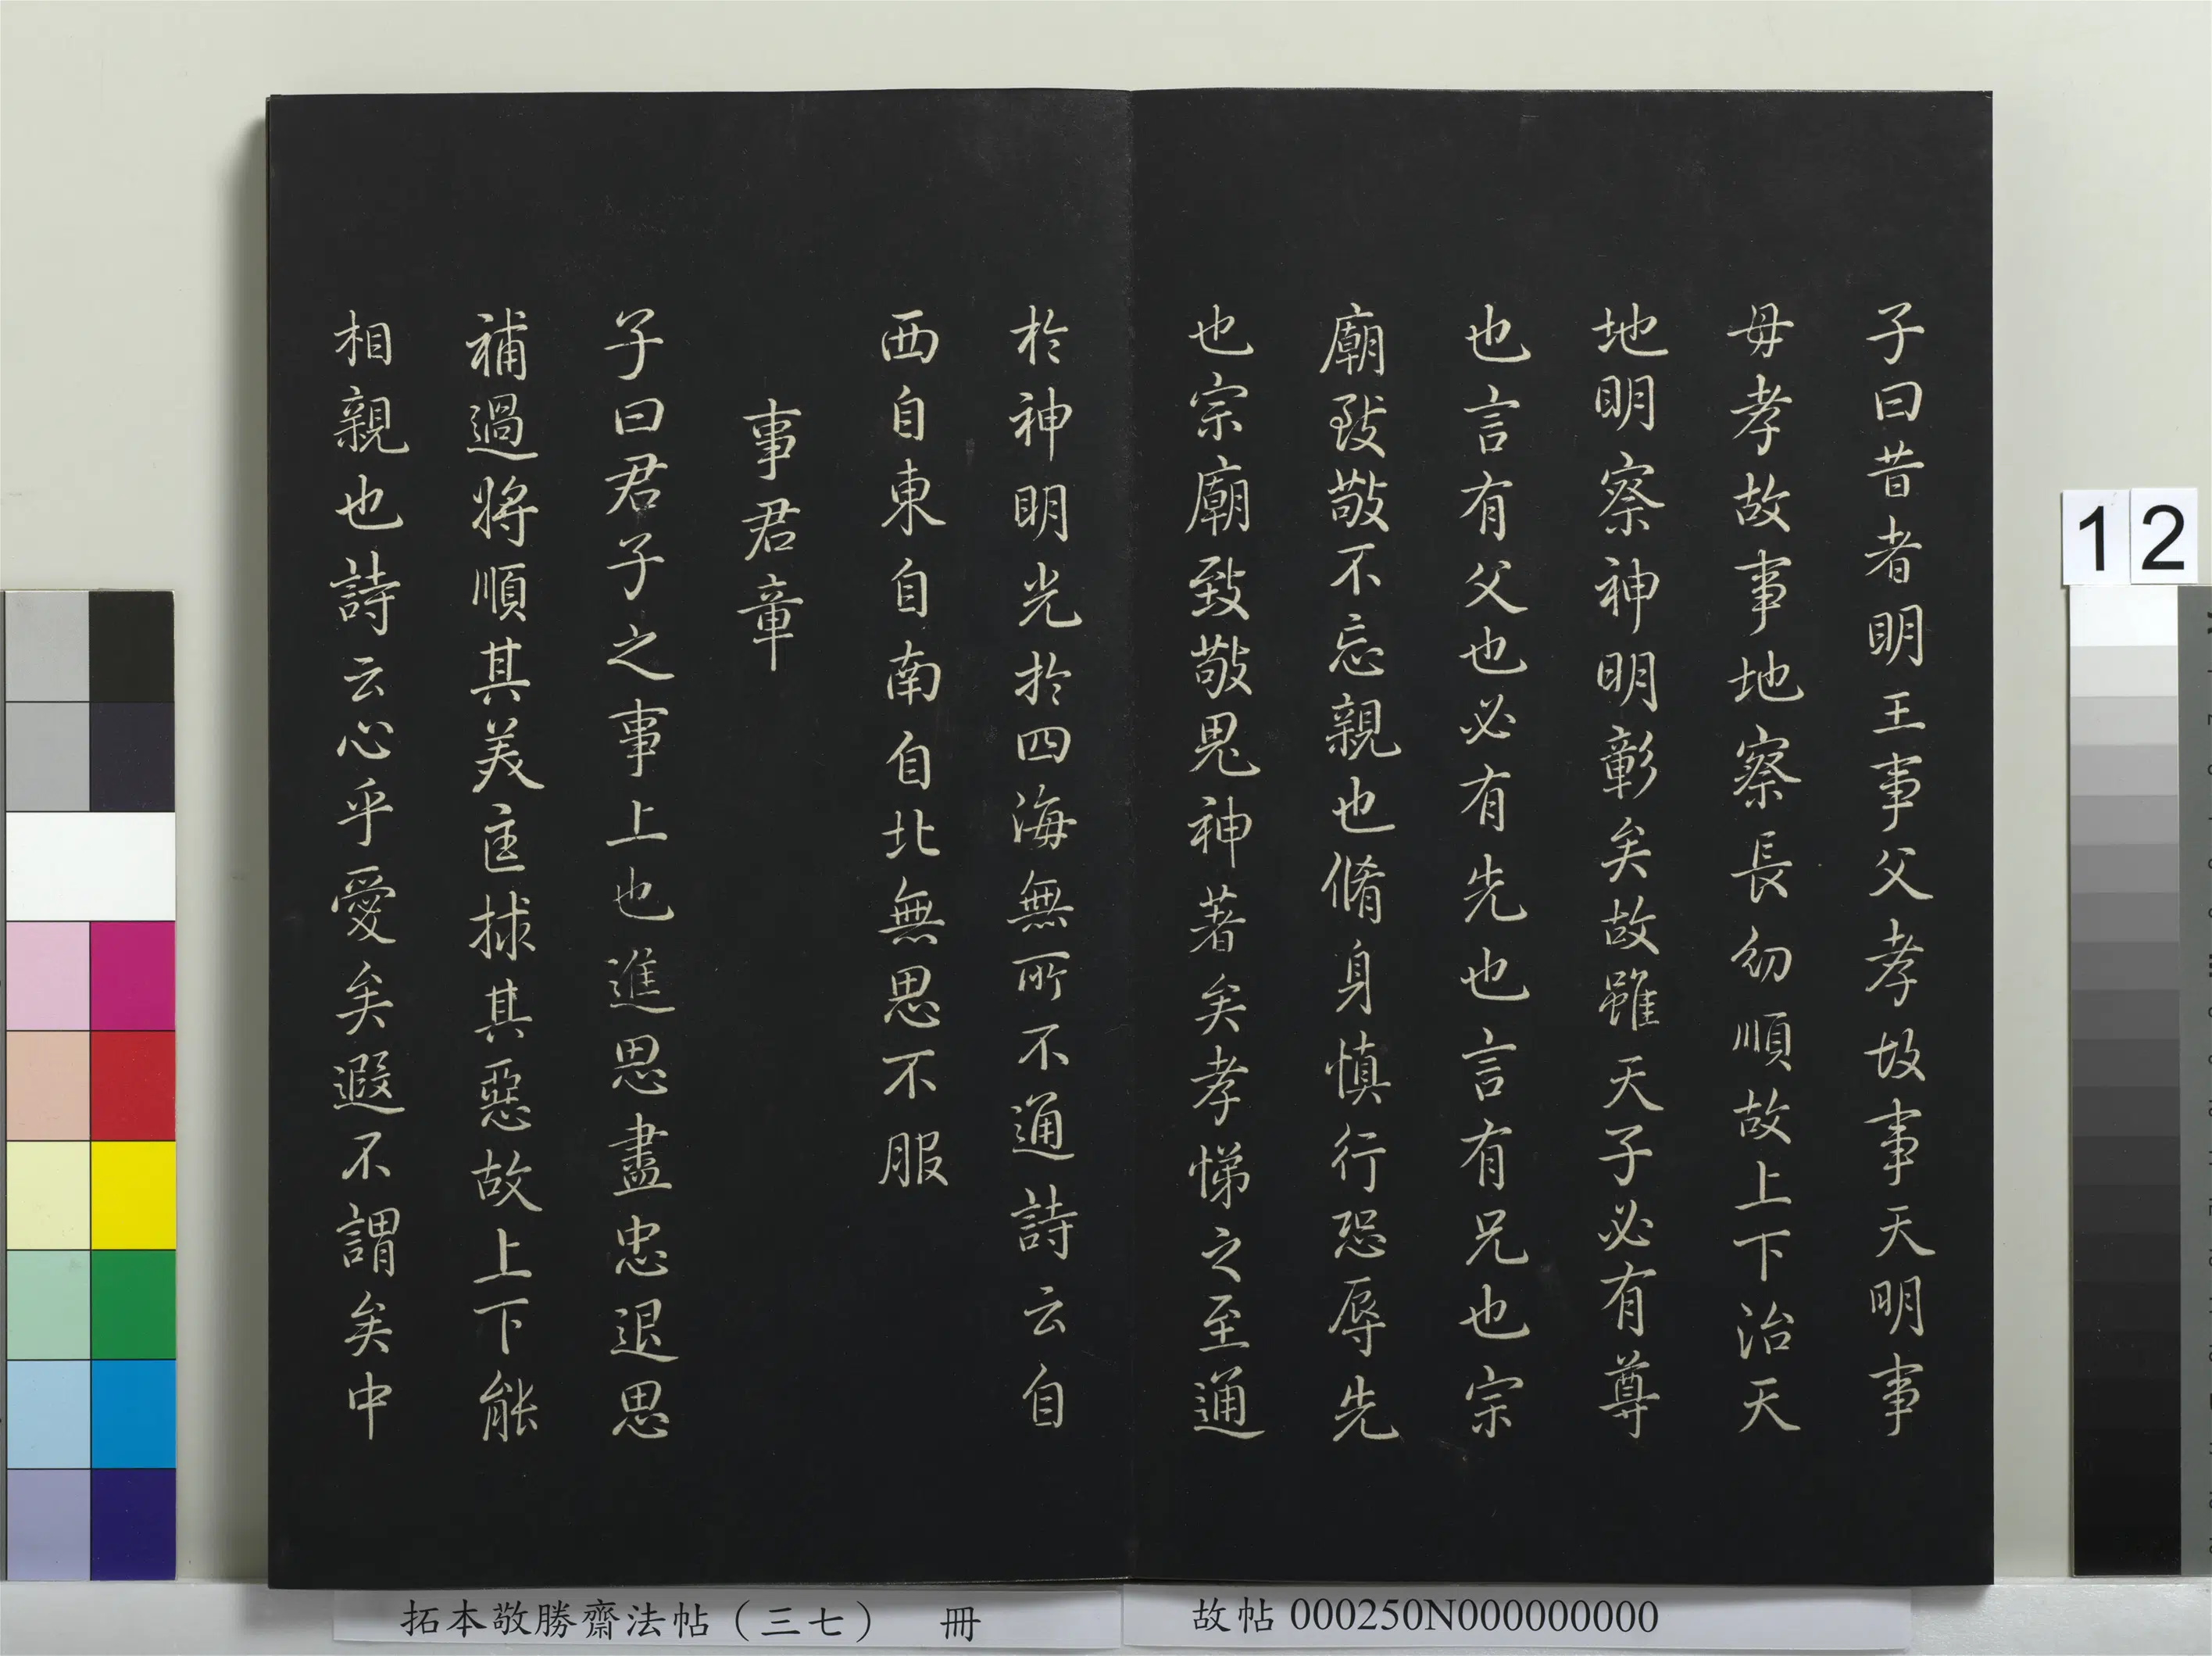 子曰昔者明王事父孝故事天明事
母孝故事地察長幼順故上下治天
地明察神明彰矣故雖天子必有尊
也言有父也必有先也言有兄也宗
廟致敬不忘親也脩身慎行恐辱先
也宗廟致敬鬼神著矣孝悌之至通
於神明光於四海無所不通詩云自
西自東自南自北無思不服
事君章
子曰君子之事上也進思盡忠退思
補過將順其美匡捄其惡故上下能
相親也詩云心乎愛矣遐不謂矣中
12
拓本敬勝齋法帖（三七） 冊
故帖 000250N000000000